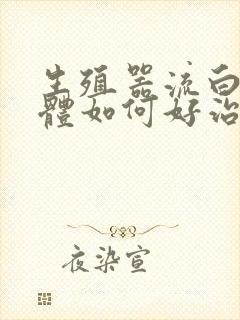 生殖器流白
體如何好治
夜染宣